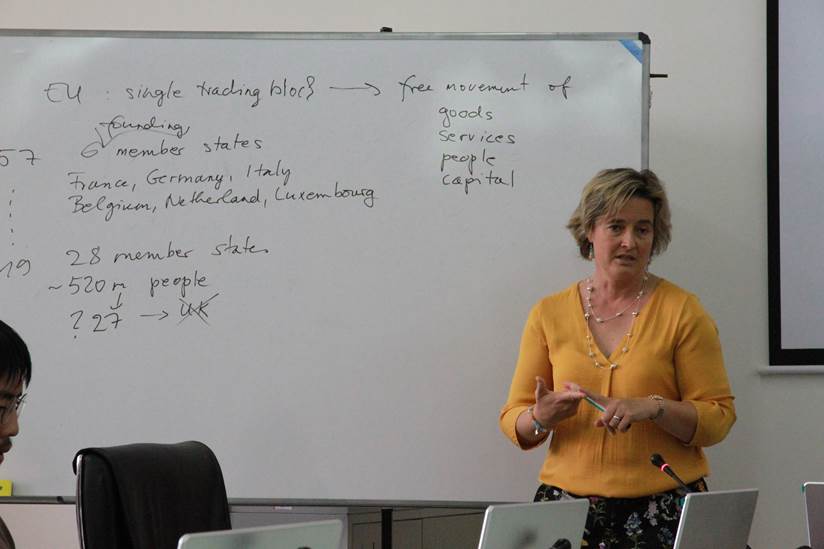 EU : single trading block → free movement of
goods
services
people
capital
founding
57 6 member states
France, Germany, Italy
Belgium, Netherland, Luxembourg
19 28 member states
~520 m people
? 27 → UK